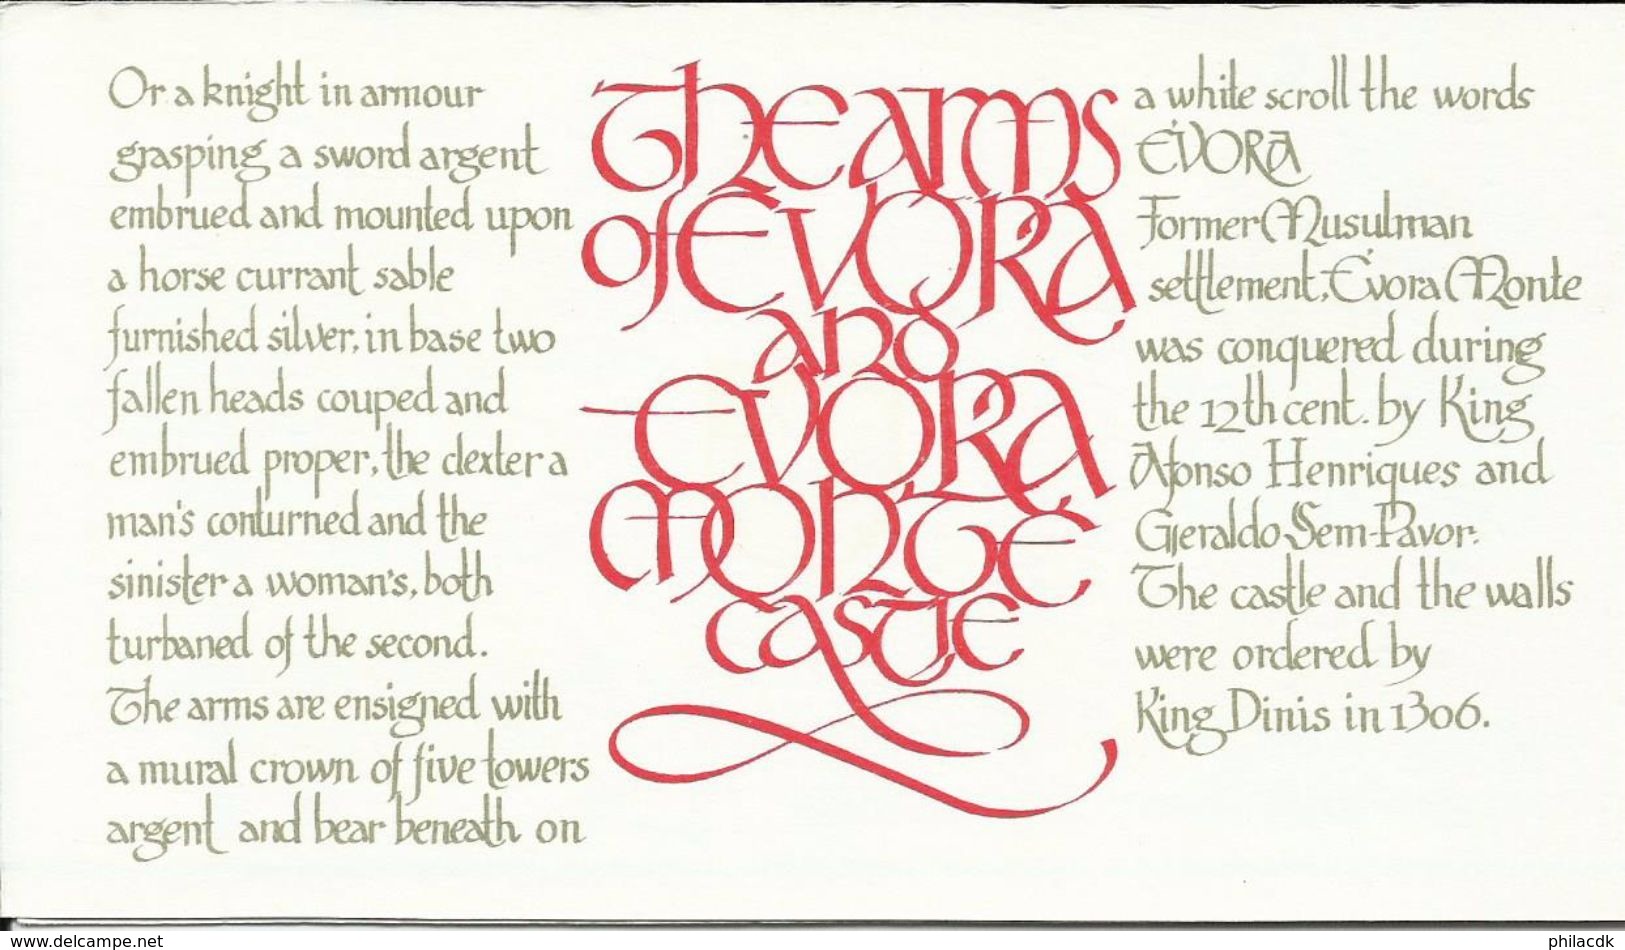 Or a knight in armour
grasping a sword argent
embrued and mounted upon
a horse currant sable
furnished silver, in base two
fallen heads couped and
embrued proper, the dexter a
man's conturned and the
sinister a woman's, both
turbaned of the second.
The arms are ensigned with
a mural crown of five towers
argent and bear beneath on
The arms
of EVORA
and
EVORA
MONTE
castle
a white scroll the words
ÉVORA
Former Musulman
settlement, Évora Monte
was conquered during
the 12th cent. by King
Afonso Henriques and
Geraldo Sem-Pavor.
The castle and the walls
were ordered by
King Dinis in 1306.
www.delcampe.net
philacdk